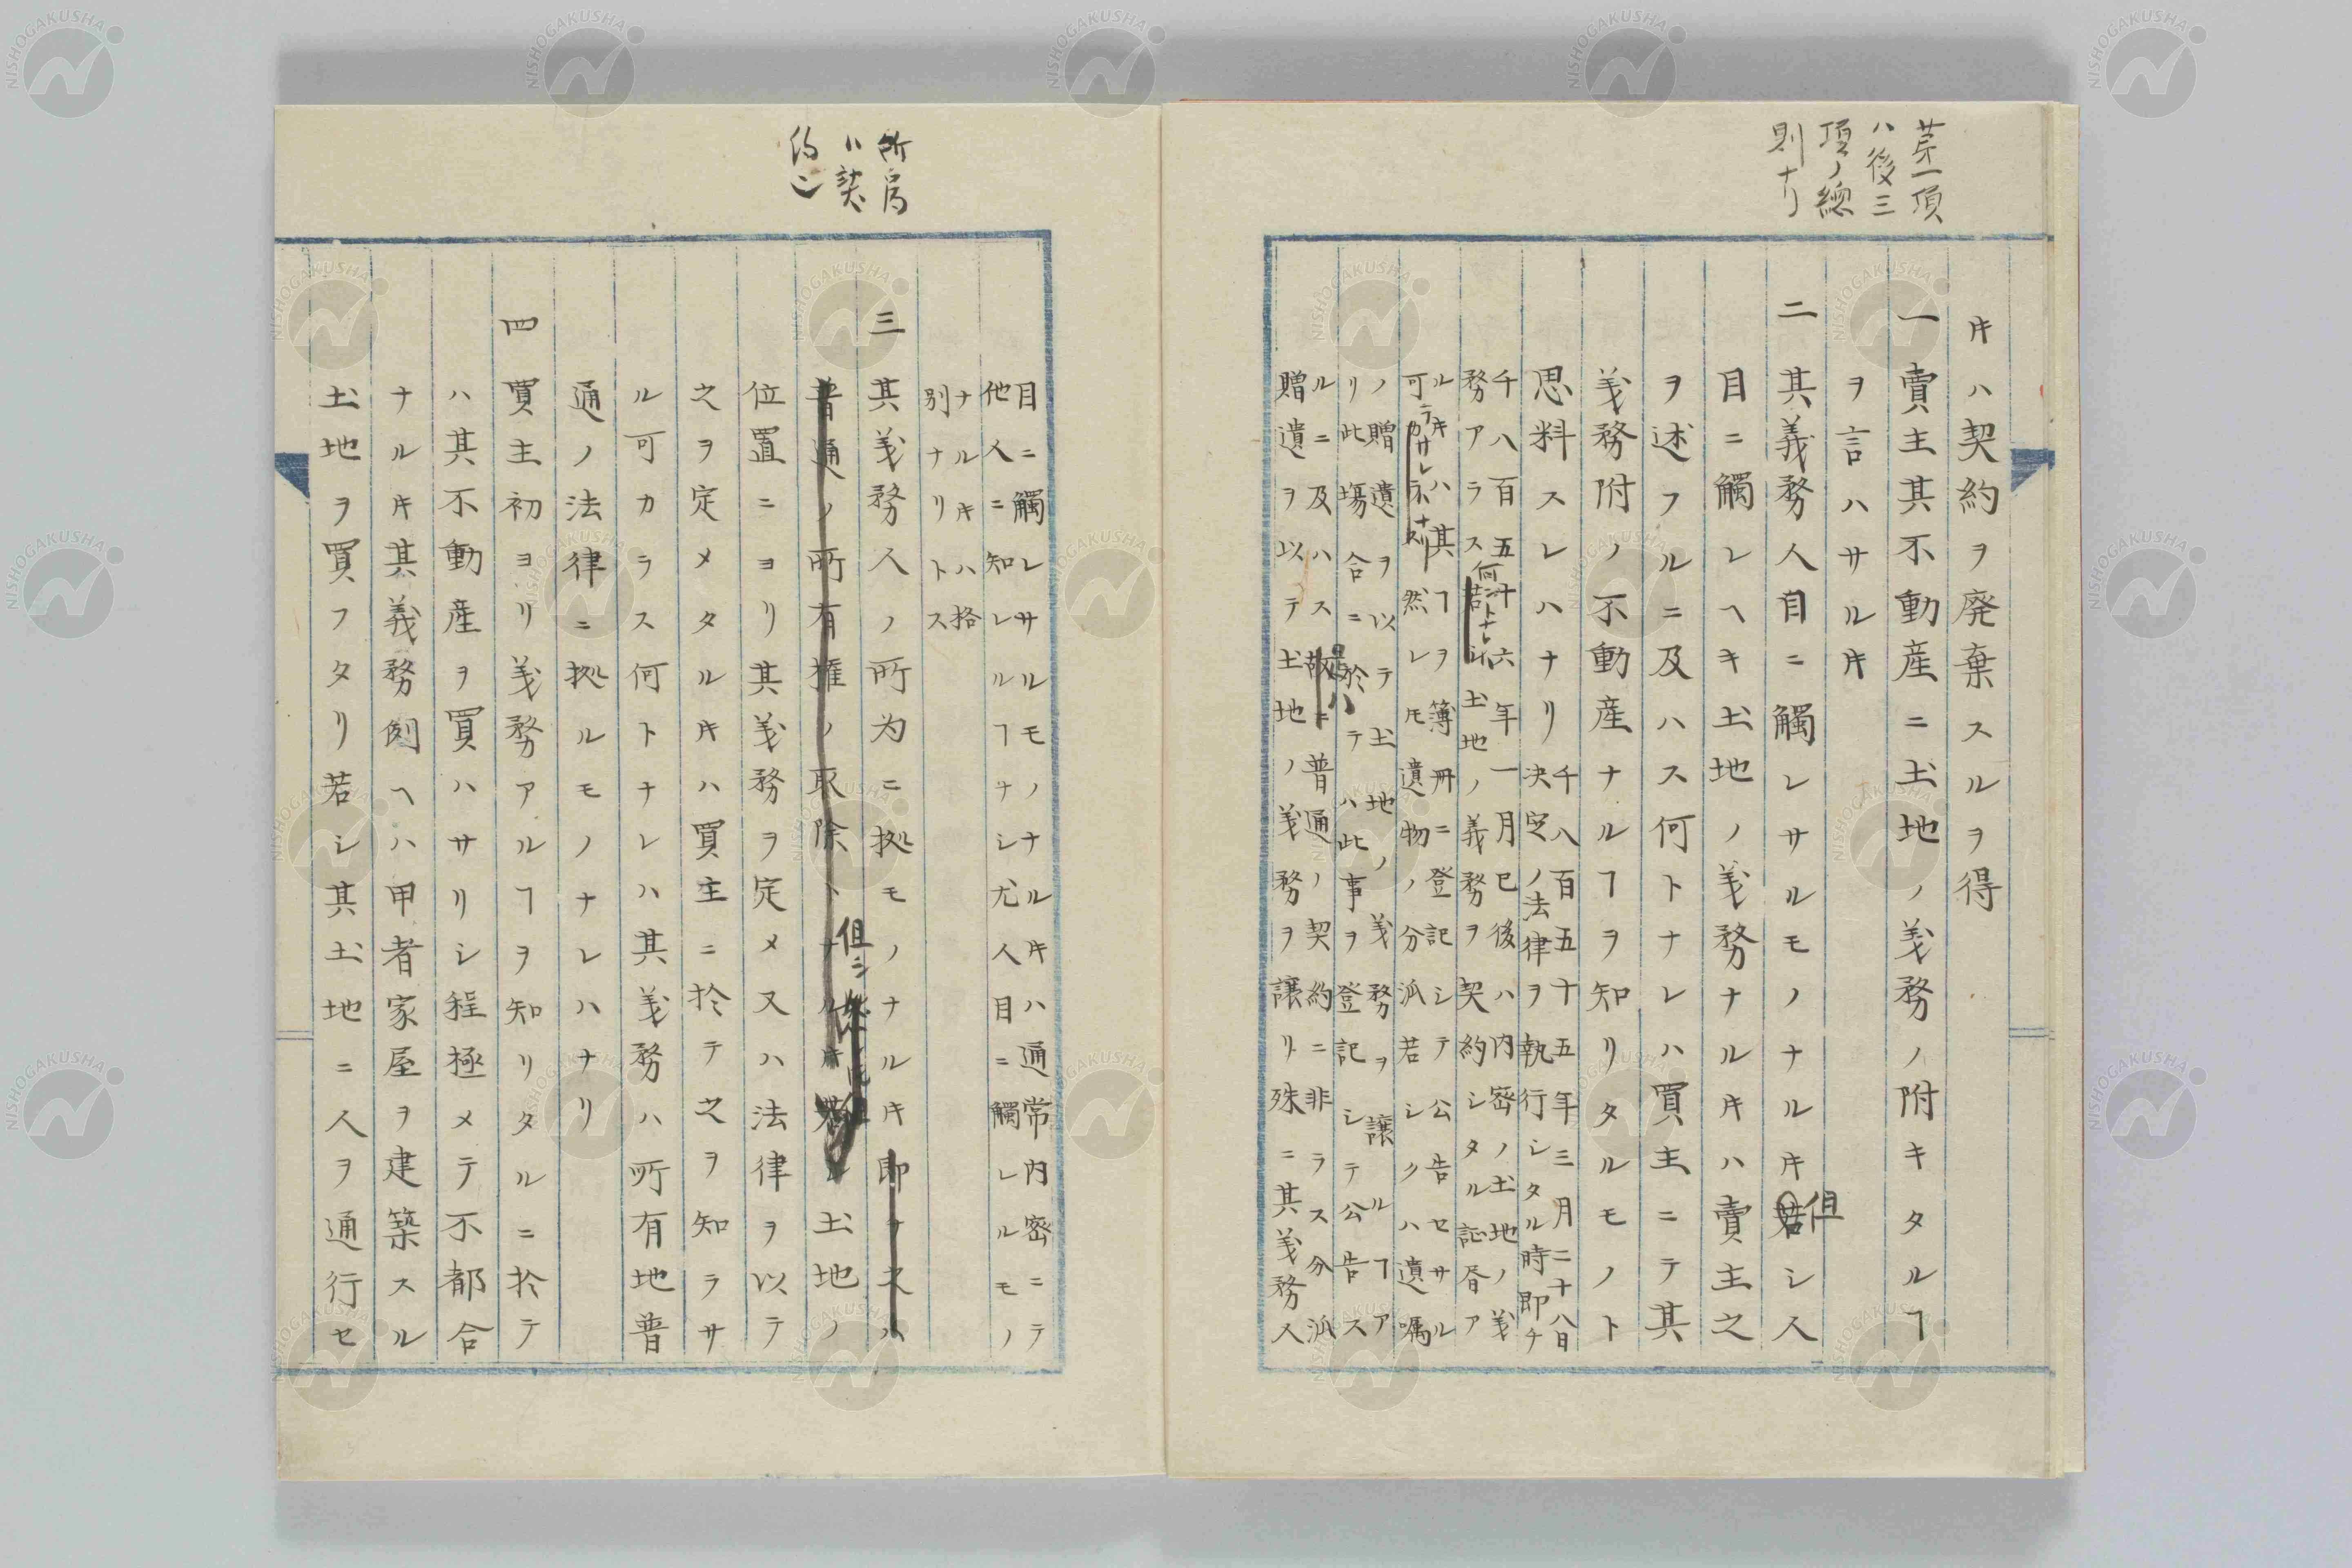 第一項
ハ後三
項ノ總
則ナリ
キハ契約ヲ廃棄スルヲ得
一 賣主其不動産ニ土地ノ義務ノ附キタルヿ
ヲ言ハサルキ
二 其義務人目ニ觸レサルモノナルキ但シ人
目ニ觸レヘキ土地ノ義務ナルキハ賣主之
ヲ述フルニ及ハス何トナレハ買主ニテ其
義務附ノ不動産ナルヿヲ知リタルモノト
思料スレハナリ
千八百五十五年三月二十八日
決定ノ法律ヲ執行シタル時即チ
千八百五十六年一月巳後ハ内密ノ土地ノ義
務アラス何トナレハ土地ノ義務ヲ契約シタル証書ア
ルキハ其ヿヲ簿冊ニ登記シテ公告セサル
可カラサレハナリ然レ𪜈遺物ノ分派若シクハ遺嘱
ノ贈遺ヲ以テ土地ノ義務ヲ譲ルヿア
リ此塲合ニ於テハ此事ヲ登記シテ公告ス
ルニ及ハス普通ノ契約ニ非ラス分派
贈遺ヲ以テ土地ノ義務ヲ譲リ殊ニ其義務人
所為
ハ契
約ニ
目ニ觸レサルモノナルキハ通常内密ニテ
他人ニ知レルヿナシ尤人目ニ觸レルモノ
ナルキハ格
別ナリトス
三 其義務人ノ所為ニ拠モノナルキ即チスハ
普通ノ所有権ノ取除トナルキ 但シ土地ノ
位置ニヨリ其義務ヲ定メ又ハ法律ヲ以テ
之ヲ定メタルキハ買主ニ於テ之ヲ知ラサ
ル可カラス何トナレハ其義務ハ所有地普
通ノ法律ニ拠ルモノナレハナリ
四 買主初ヨリ義務アルヿヲ知リタルニ於テ
ハ其不動産ヲ買ハサリシ程極メテ不都合
ナルキ其義務例ヘハ甲者家屋ヲ建築スル
土地ヲ買フタリ若シ其土地ニ人ヲ通行セ
NISHOGAKUSHA